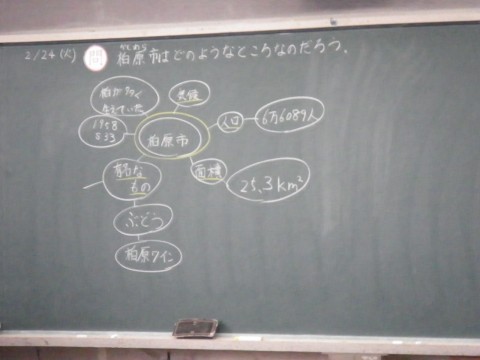 2/24(火) 問 柏原市はどのようなところなのだろう。
かしわら
柏が多く
生えていた
気候
1958
S33
柏原市
人口
6万6089人
有名な
もの
面積
25.3km²
ぶどう
柏原ワイン